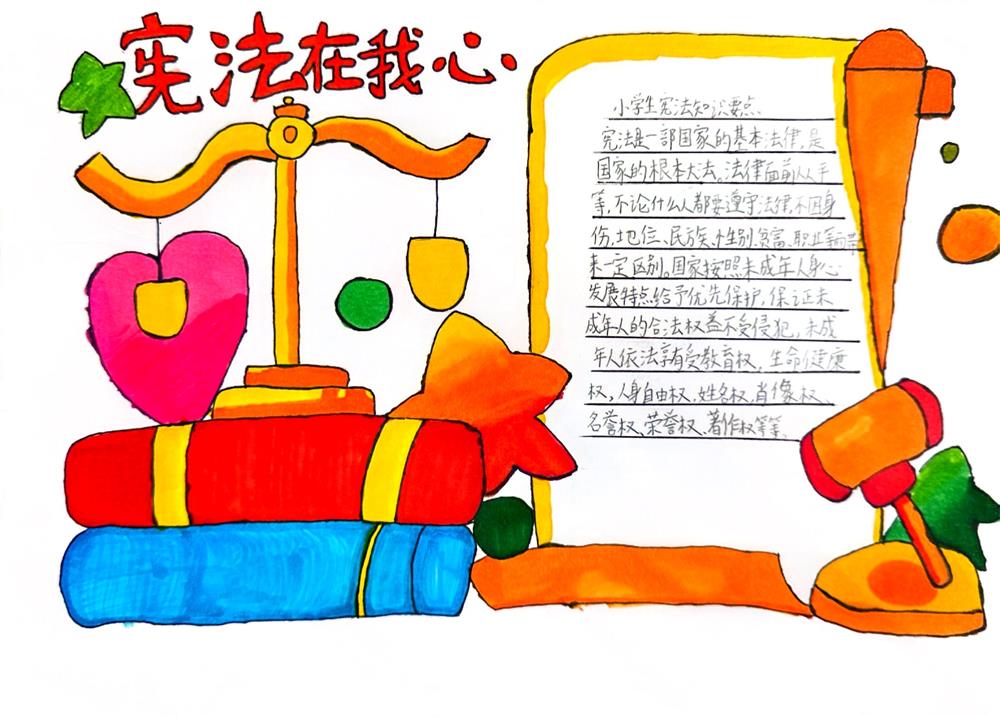 宪法在我心
小学生宪法知识要点
宪法是一部国家的基本法律,是
国家的根本大法。法律面前人人平
等,不论什么人都要遵守法律,不因身
份、地位、民族、性别、贫富、职业等而带
来一定区别。国家按照未成年人身心
发展特点给予优先保护,保证未
成年人的合法权益不受侵犯,未成
年人依法享有受教育权,生命健康
权,人身自由权,姓名权,肖像权、
名誉权、荣誉权、著作权等等、